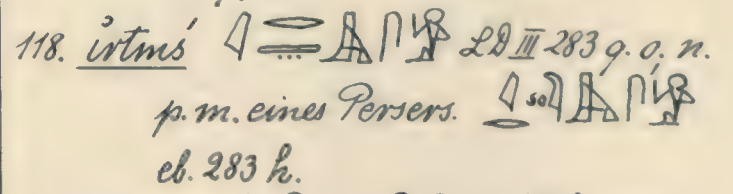 118. i͗rtmś LD III 283 g. o. n.
p. m. eines Persers. so
eb. 283 h.